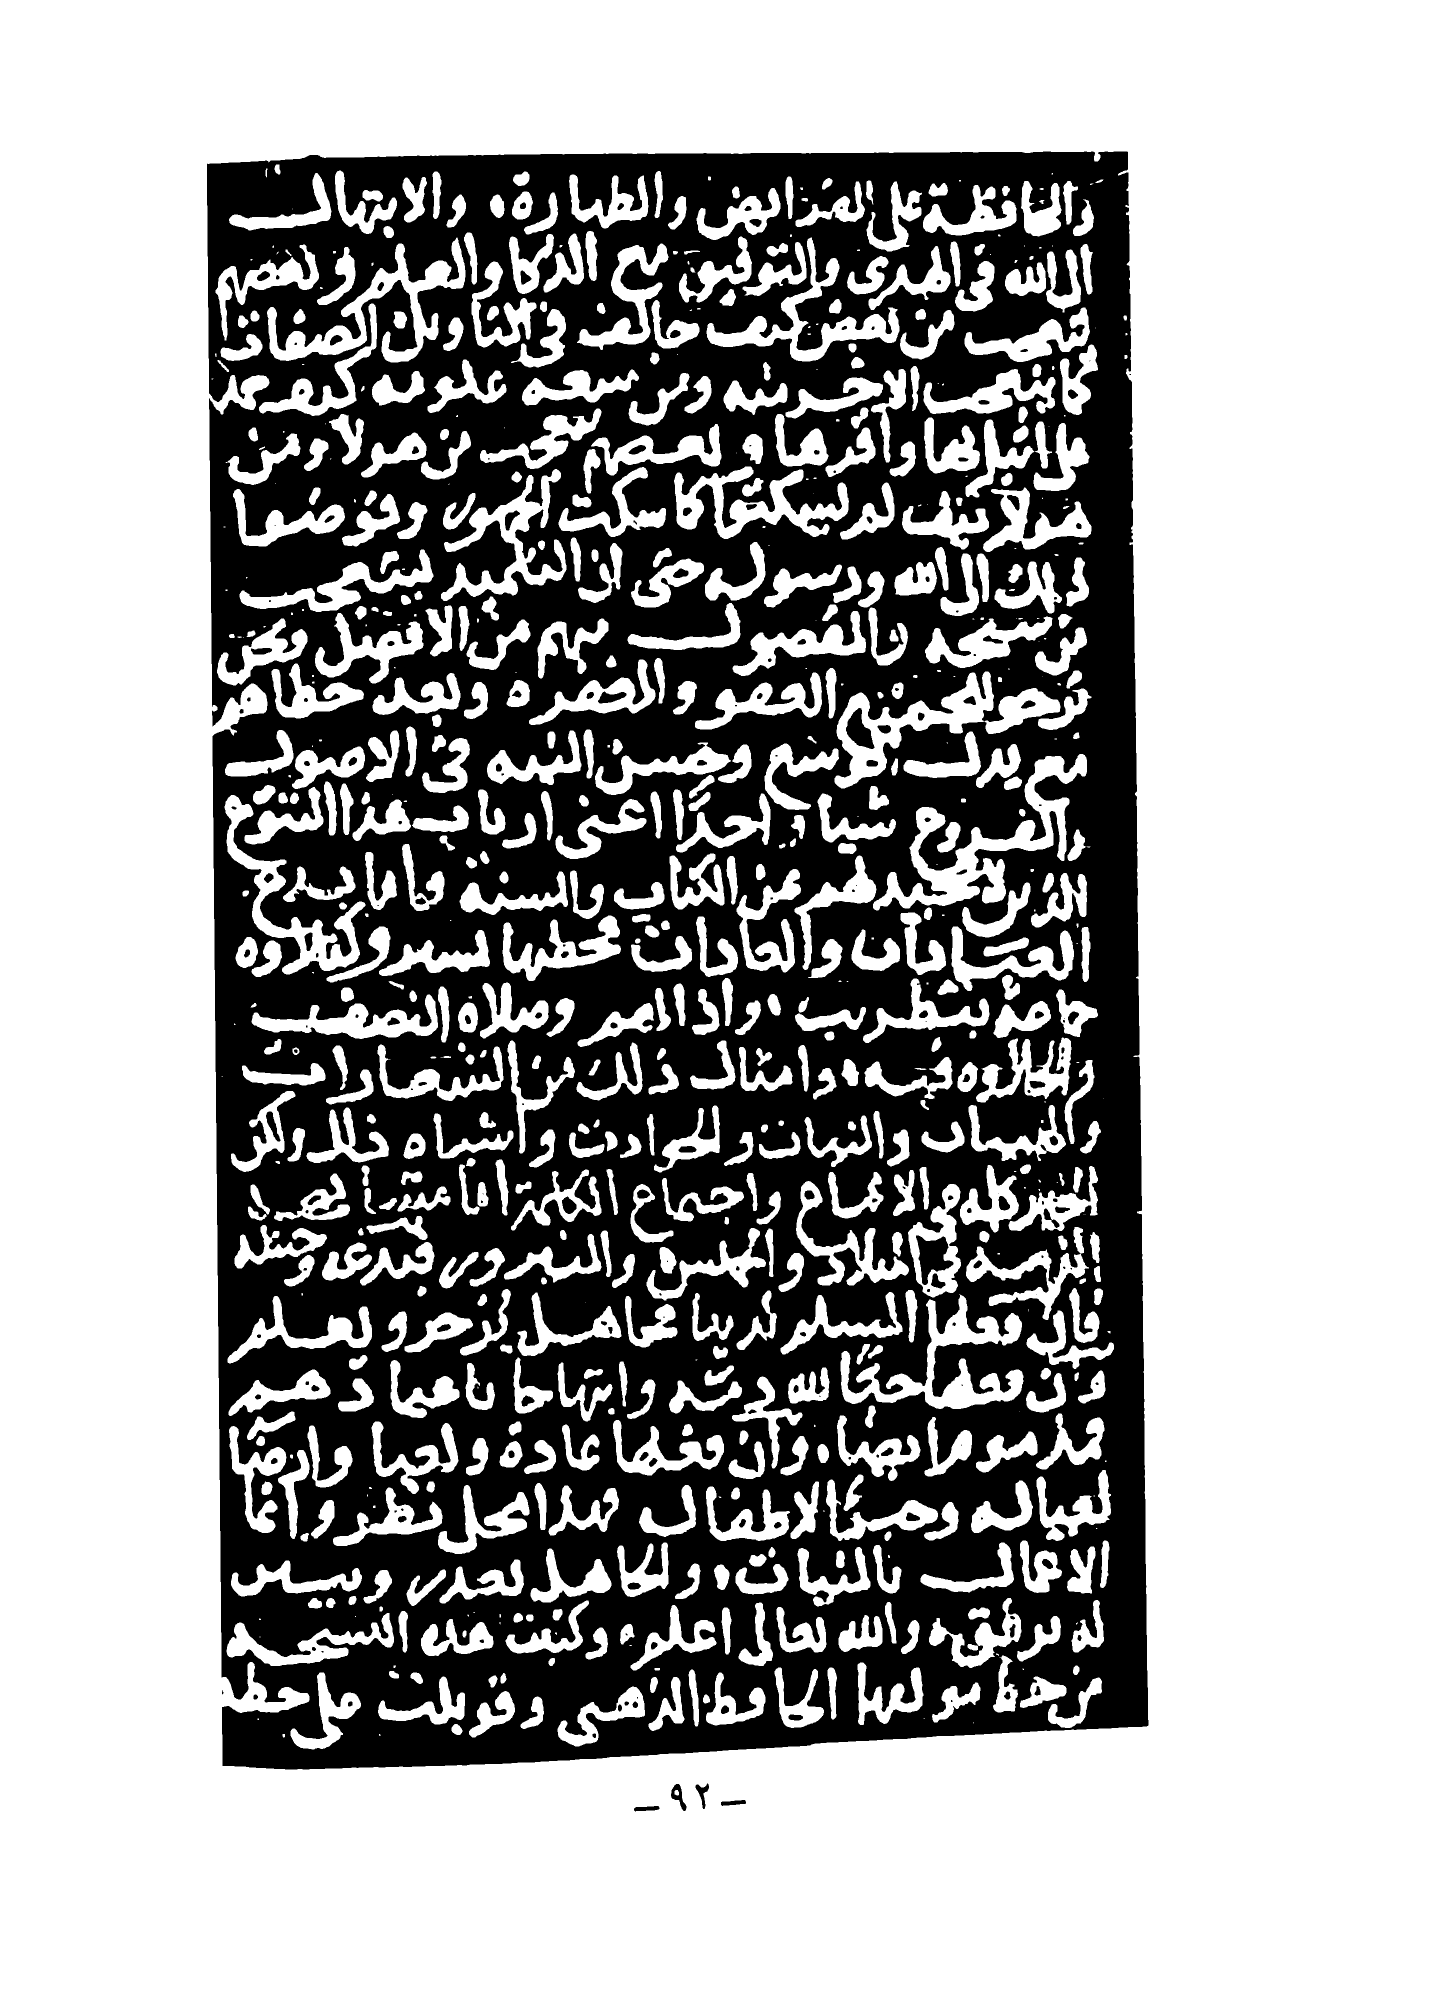 والمحافظة على الفرائض والطهارة، والابتهال
الى الله في الهدى والتوفيق مع الذكا والعلم وبعضهم
يتعجب من بعض كيف خالف في التاويل الصفات
كما يتعجب الاخر منه ومن سعة علومه كيف
على اثباتها واقرها وبعضهم يتعجب من هولا ومن
هولا كيف لم يسكتوا كما سكت الجمهور وفوضوا
ذلك الى الله ورسوله حتى ان التلميذ ليتعجب
من شيخه والمفضول منهم من الافضل ونحن
نرجو للجميع العفو والمغفره وبعد خطاهم
مع بذل الوسع وحسن النيه في الاصول
والفروع شيا واحدا اعني ارباب هذا التنوع
الذين لا محيد لهم عن الكتاب والسنة واما بدع
العبادات والعادات فخطبها يسير وكتلاوه
جماعة بتطريب، واذا العم وصلاه النصف
والحلاوه فيه، وامثال ذلك من الشعارات
والهيبات والنيات والحوادث واشباه ذلك ولكن
الخير كله في الاتباع واجتماع الكلمة اما
في الميلاد والخميس والنيروز فبدعه وحشه
فان فعلها المسلم تدينا فجاهل يزجر ويعلم
وان فعلها حبا لله وابتهاجا باعيادهم
فمذموم ايضا، وان فعلها عادة ولعبا وارضا
لعياله وحبا لاطفال فهذا محل نظر وانما
الاعمال بالنيات، والجاهل يعذر ويبين
له برفق، والله تعالى اعلم، وكتبت هذه النسخه
من خط مولفها الحافظ الذهبي وقوبلت على خطه
- ٩٢ -